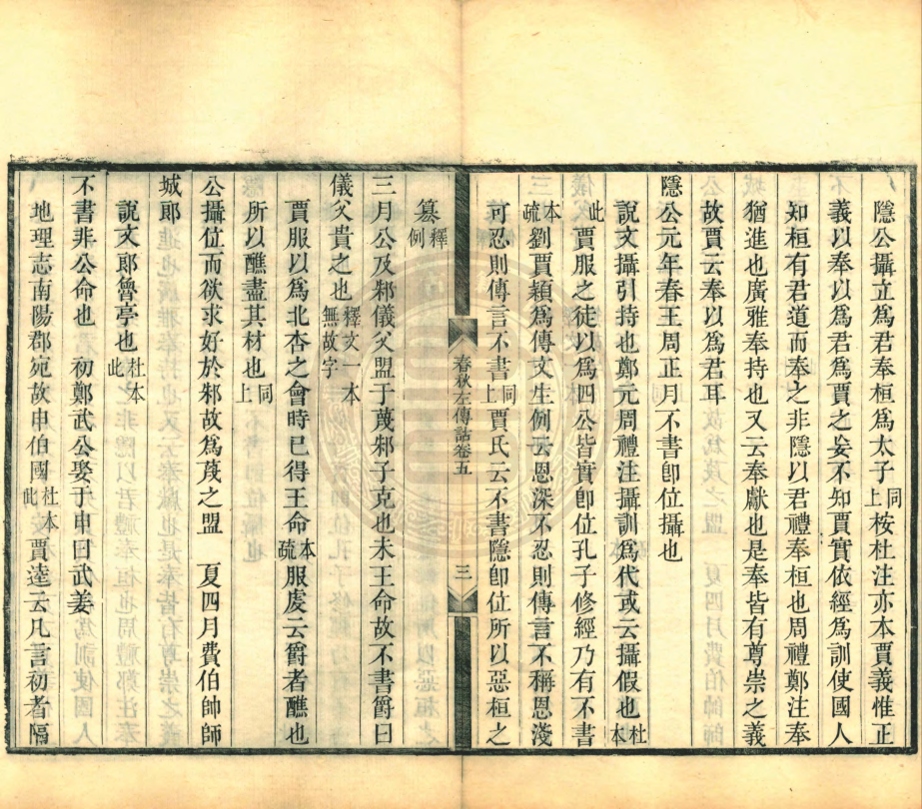 隱公攝立爲君奉桓爲太子同上桉杜注亦本賈義惟正
義以奉以爲君爲賈之妄不知賈實依經爲訓使國人
知桓有君道而奉之非隱以君禮奉桓也周禮鄭注奉
猶進也廣雅奉持也又云奉獻也是奉皆有尊崇之義
故賈云奉以爲君耳
隱公元年春王周正月不書卽位攝也
說文攝引持也鄭元周禮注攝訓爲代或云攝假也杜本
此賈服之徒以爲四公皆實卽位孔子修經乃有不書
本疏劉賈穎爲傳文生例云恩深不忍則傳言不稱恩淺
可忍則傳言不書同上賈氏云不書隱卽位所以惡桓之
春秋左傳詁卷五
三
篡釋例
三月公及邾儀父盟于蔑邾子克也未王命故不書爵曰
儀父貴之也釋文一本無故字
賈服以爲北杏之會時已得王命本疏服虔云爵者醮也
所以醮盡其材也同上
公攝位而欲求好於邾故爲蔑之盟　夏四月費伯帥師
城郞
說文郞魯亭也杜本此
不書非公命也　初鄭武公娶于申曰武姜
地理志南陽郡宛故申伯國杜本此賈逵云凡言初者隔